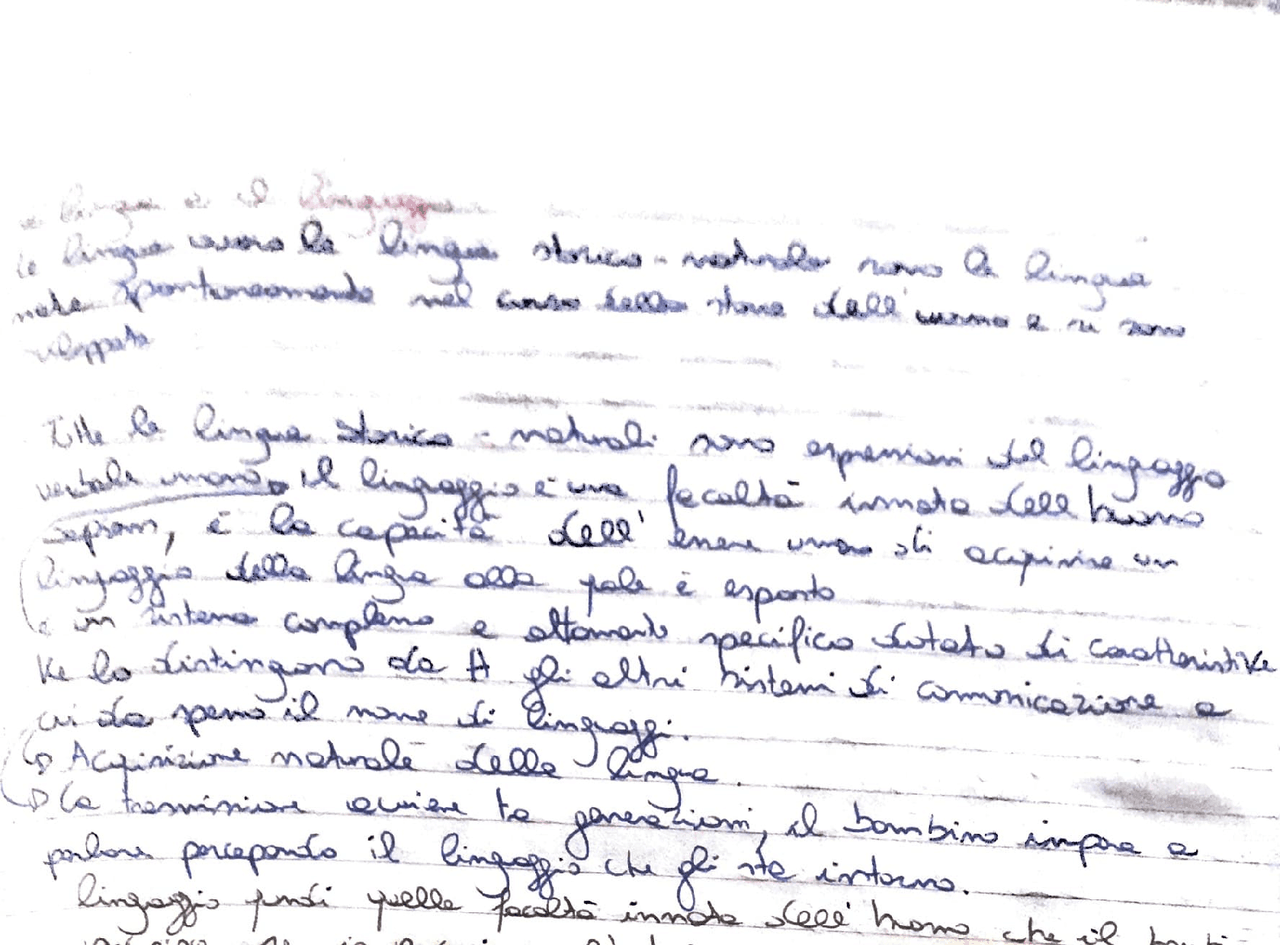 lingua e il linguaggio
le lingue ovvero le lingue storico-naturale sono le lingue
nate spontaneamente nel corso della storia dell'uomo e si sono
sviluppate
Tutte le lingue storico-naturali sono espressioni del linguaggio
verbale umano, il linguaggio è una facoltà innata dell'homo
sapiens, è la capacità dell'essere umano di acquisire un
linguaggio della lingua alla quale è esposto
è un sistema complesso e altamente specifico dotato di caratteristike
ke lo distinguono da tt gli altri sistemi di comunicazione a
cui da spesso il nome di linguaggi.
Acquisizione naturale della lingua.
la trasmissione avviene tra generazioni, il bambino impara a
parlare percependo il linguaggio che gli sta intorno.
linguaggio quindi quella facoltà innata dell'homo che il